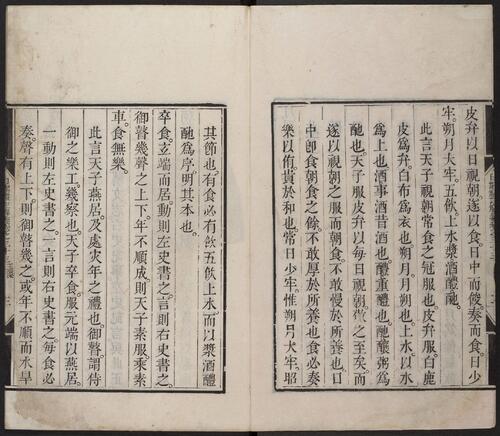 皮弁以日視朝。遂以食。日中而餕。奏而食。日少
牢。朔月大牢。五飲。上水漿酒醴酏。
此言天子視朝常食之冠服也。皮弁服。白鹿
皮爲弁。白布爲衣也。朔月。月朔也。上水。以水
爲上也。酒。事酒昔酒也。醴重醴也。酏釀粥爲
酏也。天子服皮弁以每日視朝。敬之至矣。而
遂以視朝之服而朝食。不敢慢於所養也。日
中卽食朝食之餘。不敢厚於所養也。食必奏
樂以侑。貴於和也。常日少牢。惟朔月大牢。昭
其節也。有食必有飲。五飲上水。而以漿酒醴
酏爲序。明其本也。
卒食。玄端而居。動則左史書之。言則右史書之。
御瞽幾聲之上下。年不順成則天子素服。乘素
車。食無樂。
此言天子燕居。及處灾年之禮也。御瞽。謂侍
御之樂工。幾。察也。天子卒食。服元端以燕居。
一動則左史書之。一言則右史書之。每食必
奏。聲有上下。則御瞽幾之。或年不順而水旱